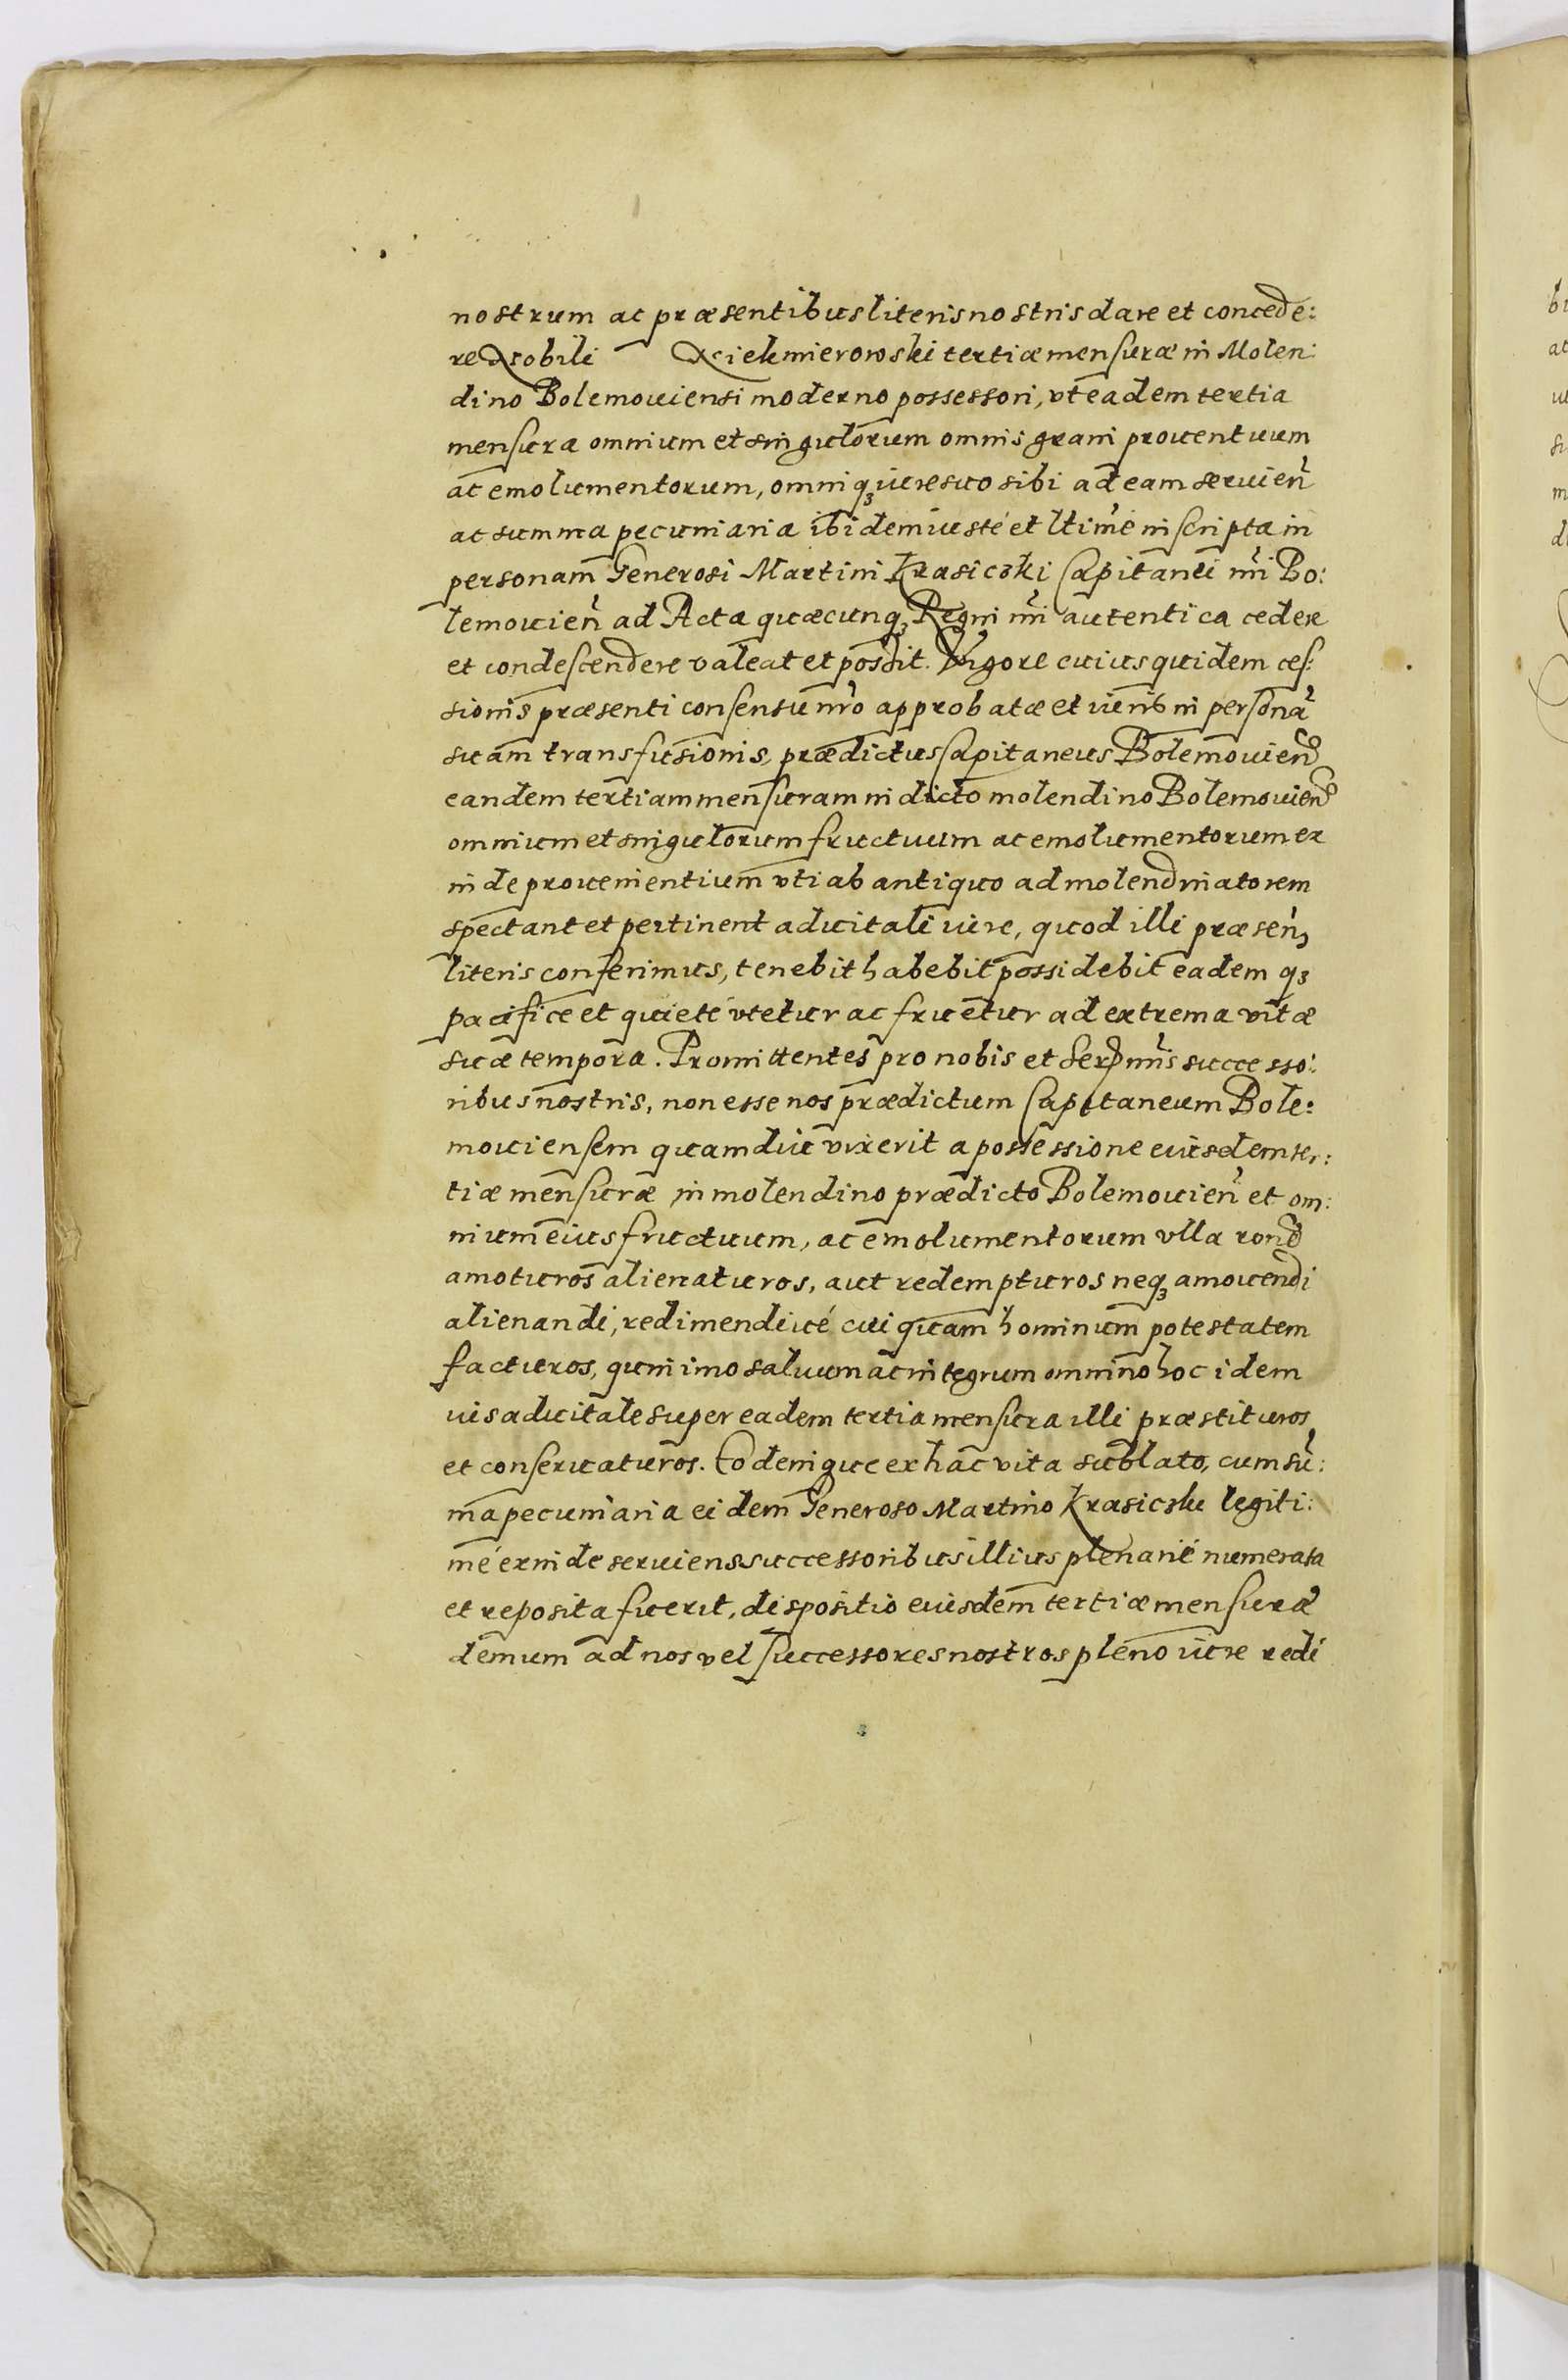 nostrum ac præsentibus literis nostris dare et concede:
re Nobili Niekmierowski tertiæ mensuræ in Molen:
dino Bolemouiensi moderno possessori, vt eadem tertia
mensura omnium et singulorum omnis grani prouentuum
ac emolumentorum, omniq3 iure suo sibi ad eam seruien̄
ac summa pecuniaria ibidem iusté et ltimé inscripta in
personam Generosi Martini Krasicski Capitanei nr̄i Bo:
lemouien̄ ad Acta quæcunq3 Regni nr̄i autentica cedere
et condescendere valeat et possit. Vigore cuius quidem ces:
sionis præsenti consensu nr̄o approbatæ et iuris in personā
suam transfusionis, prædictus Capitaneus Bolemouien̄
eandem tertiam mensuram in dicto molendino Bolemouien̄
omnium et singulorum fructuum ac emolumentorum ex
inde prouenientium vti ab antiquo ad molendinatorem
spectant et pertinent aduitali iure, quod illi præsen̄
literis conferimus, tenebit habebit possidebit eademq3
pacifice et quieté vtetur ac fruetur ad extrema vitæ
suæ tempora. Promittentes pro nobis et Ser̄mis successo:
ribus nostris, non esse nos prædictum Capitaneum Bole:
mouiensem quamdiu vixerit a possessione eiusdem ter:
tiæ mensuræ in molendino prædicto Bolemouien̄ et om:
nium eius fructuum, ac emolumentorum vlla ron̄e
amoturos alienaturos, aut redempturos neq3 amouendi
alienandi, redimendiué cuiquam hominum potestatem
facturos, quinimo saluum ac integrum omnino hoc idem
ius aduitale super eadem tertia mensura illi præstituros
et conseruaturos. Eo denique ex hac vita sublato, cum sū:
ma pecuniaria eidem Generoso Martino Krasicski legiti:
mé exinde seruiens successoribus illius plenarié numerata
et reposita fuerit, dispositio eiusdem tertiæ mensuræ
demum ad nos vel successores nostros pleno iure redi